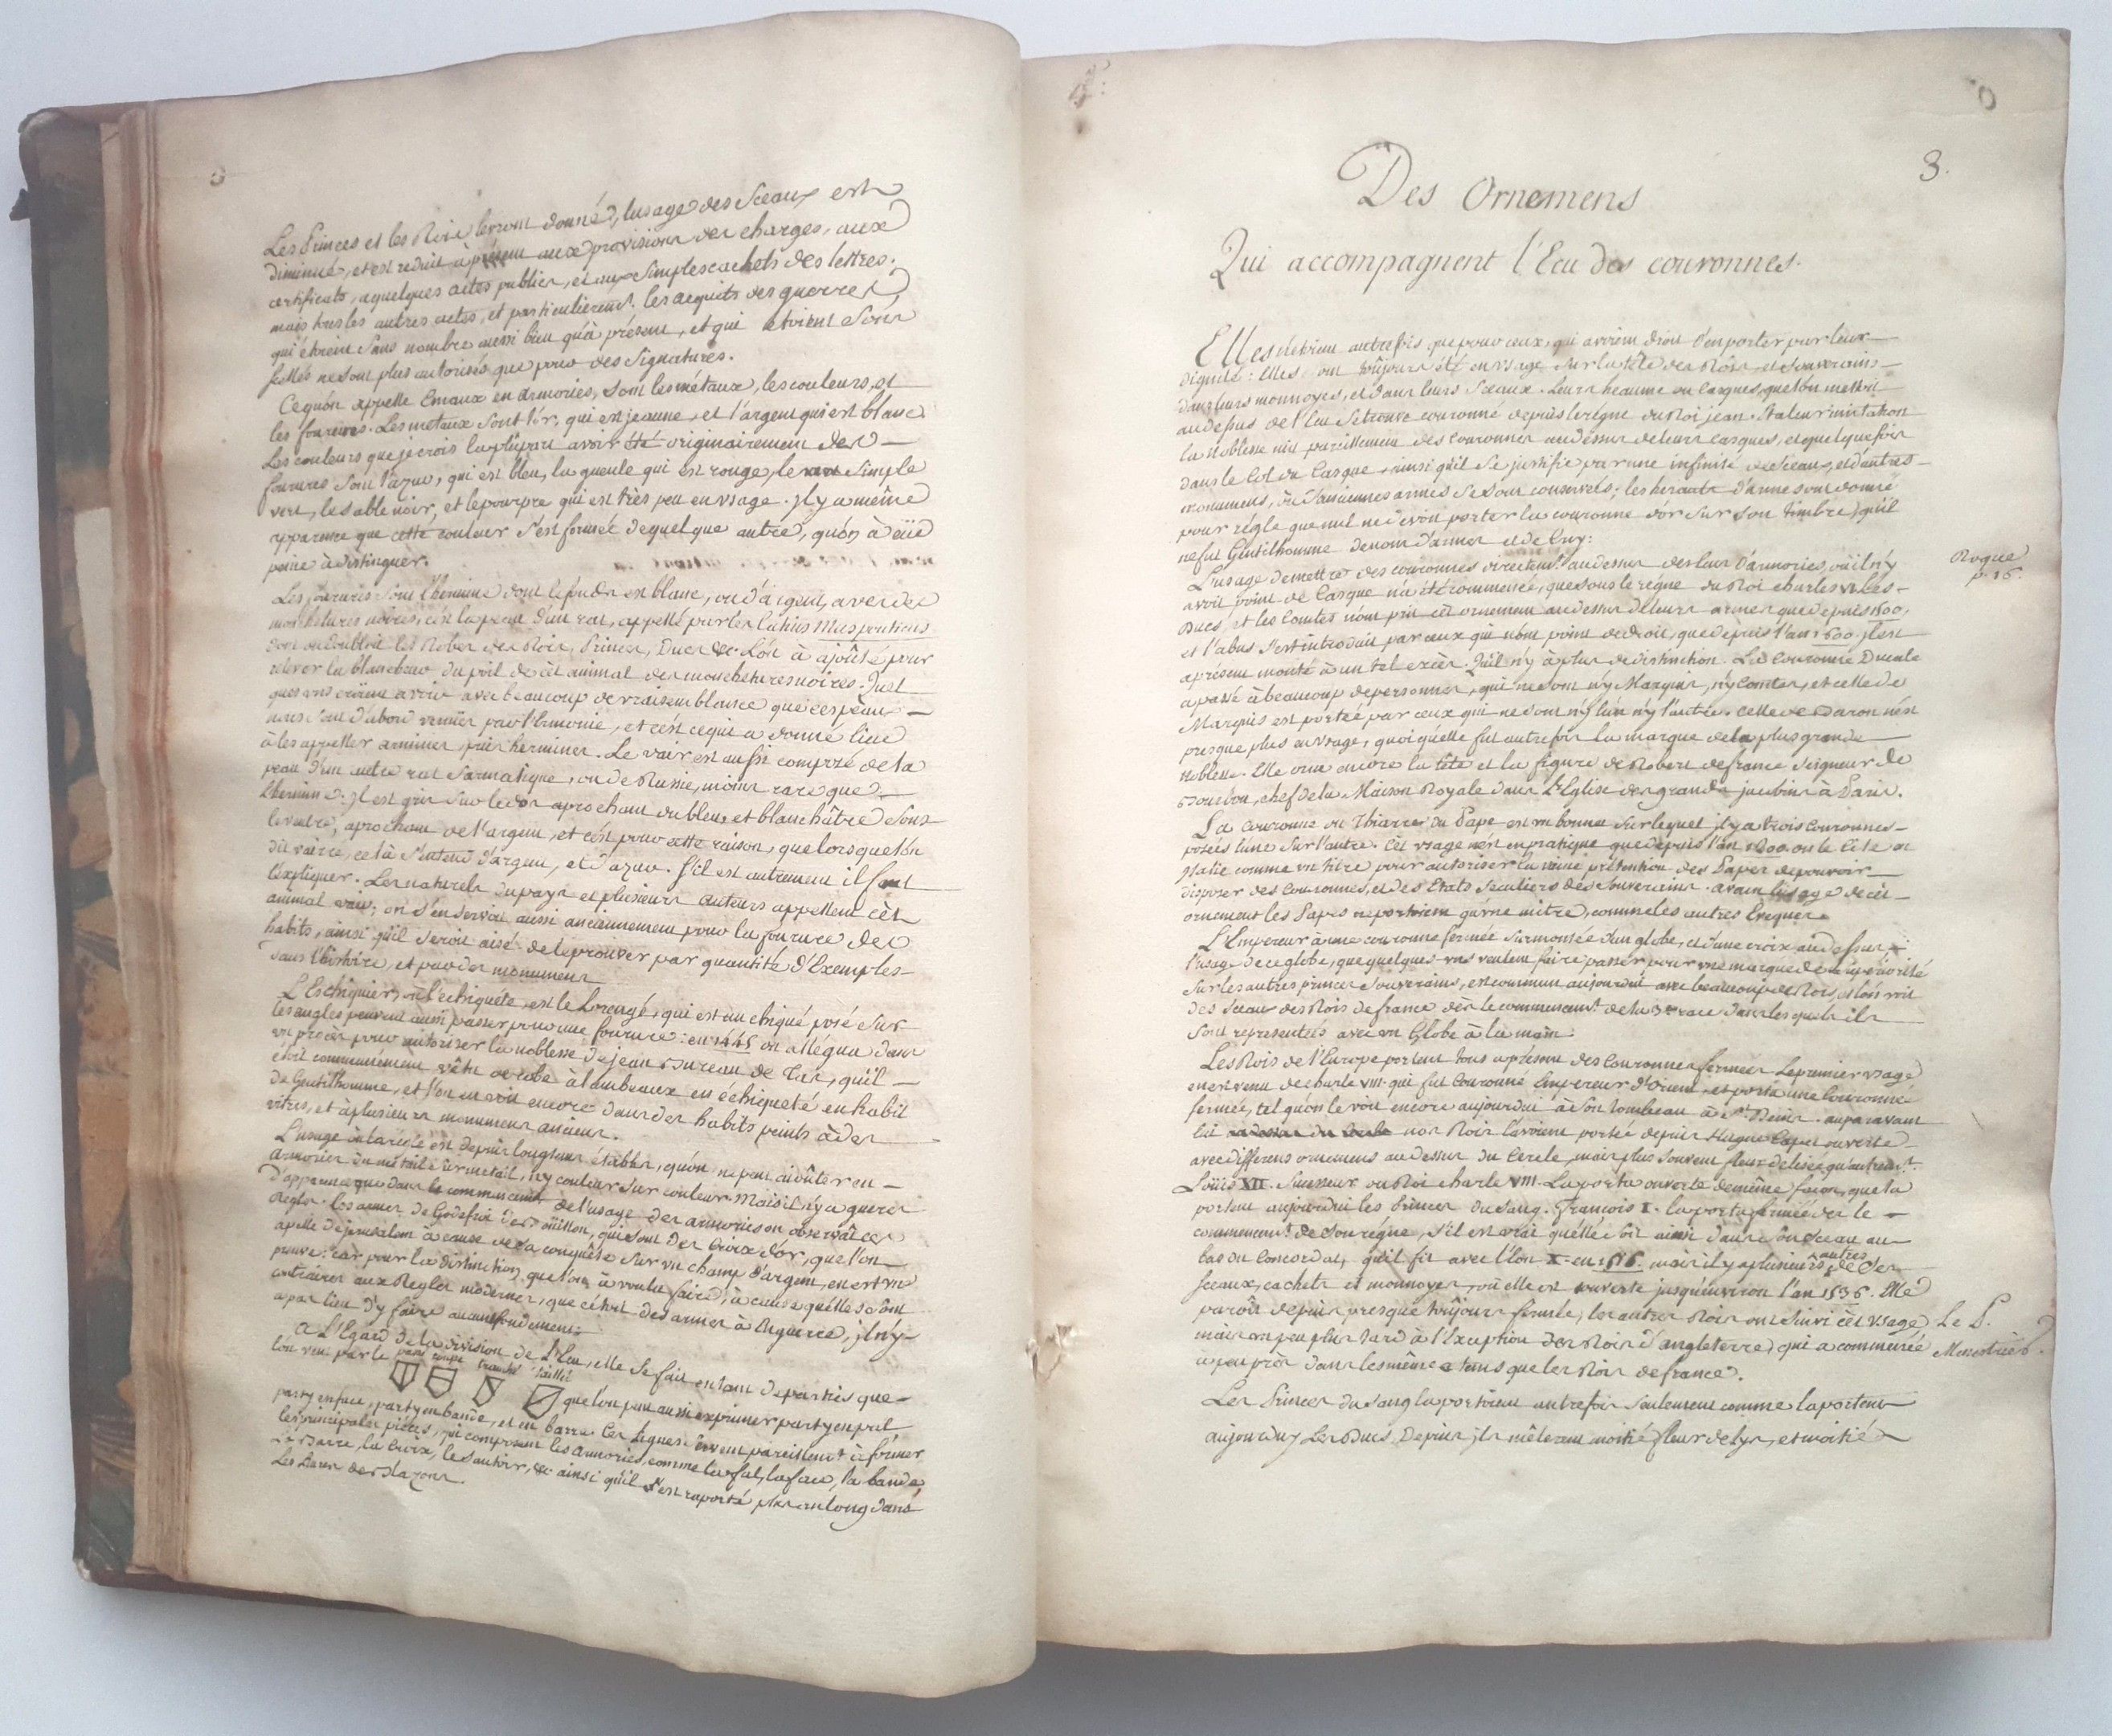 Les Princes et les Rois leur ont donnés, lusage des Sceaux est
diminué, et est reduit à présent aux provisions des charges, aux
certificats, aquelques actes publics, et aux simples cachets des lettres.
mais tous les autres actes, et particulierem.t les acquits des guerres,
qui étoient sans nombre aussi bien qu'à présent, et qui étoient
scellés ne sont plus autorisés que pour des signatures.
Cequ'on appelle Emaux en armories, sont les métaux, les couleurs, et
les foureures. Les metaux sont l'or, qui est jeaune, et l'argent qui est blanc
Les couleurs que je crois la plûpart avoir été originairement des
fourures sont l'azur, qui est bleu, la gueule qui est rouge, le simple
vert, le sable noir, et le pourpre qui est très peu en usage. Il y a même
apparence que cette couleur s'est formée de quelque autre, qu'on à eüe
peine à distinguer.
Les fourures sont l'hermine dont le fonds est blanc, ou d'argent, avec des
mouchetures noires, c'est la peau d'un rat, appellé par les latins Mus ponticus
dont on doubloit les Robes des Rois, Princes, Ducs &c. L'on à ajoûté pour
relever la blancheur du poil de cèt animal des mouchetures noires. Quel
ques uns croient avoir avec beaucoup de vraisemblance que ces peaux
nous sont d'abord venües par l'Armenie, et c'est cequi a donné lieu
à les appeller armines, puis hermines. Le vair est aussi composé de la
peau d'un autre rat Sarmatique, ou de Russie, moins rare que
L'hermine. Il est gris sur le dos aprochant du bleu, et blanchâtre sous
le ventre, aprochant de l'argent, et c'est pour cette raison, que lorsque l'on
dit vairé, celà s'entend d'argent, et d'azur. S'il est autrement il faut
l'expliquer. Les naturels du pays et plusieurs auteurs appellent cèt
animal vair; on s'en servoit aussi anciennement pour la fourure des
habits, ainsi qu'il seroit aisé de le prouver par quantité d'Exemples
dans l'histoire, et par des monumens
L'Eschiquier, où l'echiqueté, est le Lozengé, qui est un chiqué posé sur
les angles peuvent aussi passer pour une fourure: en 1445 on allégua dans
un procès pour autoriser la noblesse de jean Bureau de Tar, qu'il
étoit communément vêtu de robe à lambeaux en échiqueté en habit
de Gentilhomme, et l'on en voit encore dans des habits peints à des
vitres, et à plusieurs monumens anciens.
L'usage ou la règle est depuis longtems établie, qu'on ne peut ajoûter en
armories du métail sur metail, ny couleur sur couleur. Mais il n'y a gueres
d'apparence que dans le commencem.t de l'usage des armories on observât ces
Regles. les armes de Godefroi de Boüillon, qui sont des Croix d'or, que l'on
apelle de jerusalem à cause de sa conquête sur un champ d'argent, en est une
preuve: car pour la distinction que l'on à voulu faire, à cause qu'elles sont
contraires aux Regles modernes, que c'étoit des armes à enquerre, il n'y
a pas lieu d'y faire aucun fondement.
A L'Egard de la division de l'Ecu, elle se fait en tant de parties que
l'on veut par le party coupé tranché taillé
que l'on peut aussi exprimer party en pal
party en face, party en bande, et en barre. Ces lignes servent pareillem.t à former
les principales pièces, qui composent les armories, comme le pal, la face, la bande,
La Barre, la Croix, le sautoir, &c. ainsi qu'il s'est raporté plus au long dans
Les Livres des Blazons.
8.
Des Ornemens
Qui accompagnent l'Ecu des couronnes.
Elles n'étoient autrefois, que pour ceux, qui avoient droit d'en porter par leur
dignité: Elles ont toûjours été en usage sur la tête des Rois et souverains
dans leurs monnoyes, et dans leurs Sceaux. Leurs heaume ou Casques, que l'on mettoit
au dessus de l'Ecu se trouve couronné depuis le règne du Roi jean. à leur imitation
la Noblesse mit pareillement des couronnes au dessus de leurs casques, et quelquefois
dans le Col du Casque, ainsi qu'il se justifie par une infinité de Sceaux, et d'autres
monumens, où d'anciennes armes se sont conservées; les herauts d'armes ont donné
pour régle que nul ne devoit porter la couronne d'or sur son timbre, qu'il
ne fut Gentilhomme de nom d'armes et de Cry:
L'usage de mettre des couronnes directem.t au dessus des Ecus d'armories, où il n'y
avoit point de Casque n'à été commencé, que sous le règne du Roi charles VI. Les
Ducs, et les Comtes n'ont pris cèt ornement au dessus de leurs armes que depuis 1500,
et l'abus s'est introduit par ceux qui n'ont point de droit, que depuis l'an 1600. il est
aprésent monté à un tel excès, qu'il n'y à plus de distinction. La Couronne Ducale
a passé à beaucoup de personnes, qui ne sont n'y Marquis, n'y Comtes, et celle de
Marquis est portée par ceux qui ne sont n'y l'un n'y l'autre. Celle de Baron n'est
presque plus en usage, quoiqu'elle fut autrefois la marque de la plus grande
noblesse. Elle orne encore la tête et la figure de Robert de france Seigneur de
Bourbon, chef de la Maison Royale dans L'Eglise des grands jacobins à Paris.
Roque
p. 16.
La Couronne ou Thiarre du Pape est un bonnet sur lequel il y a trois Couronnes
posées l'une sur l'autre. Cèt usage n'est en pratique que depuis l'an on le Cite en
Italie comme un titre pour autoriser la vaine prétention des Papes de pouvoir
disposer des Couronnes, et des Etats Seculiers des Souverains. avant l'usage de cèt
ornement les Papes ne portoient qu'une mitre, comme les autres Evêques
L'Empereur à une couronne fermée surmontée d'un globe, et d'une croix au dessus
l'usage de ce globe, que quelques-uns veulent faire passer pour une marque de superiorité
sur les autres princes souverains, est commun aujourdui avec beaucoup de Rois, et l'on voit
des Sceaux des Rois de france dès le commencem.t de la 3.e race dans lesquels ils
sont representés avec un Globe à la main.
Les Rois de l'Europe portent tous aprésent des Couronnes fermées. Le premier usage
en est venu de charle VIII. qui fut Couronné Empereur d'Orient, et porta une Couronne
fermée, tel qu'on le voit encore aujourdui à son tombeau à S.t Denis. auparavant
lui nos Rois l'avoient portée depuis Hugue Capet ouverte
avec differens ornemens au dessus du Cercle, mais plus souvent fleur-delisée qu'autrem.t
Loüis XII. Successeur du Roi charle VIII. La porta ouverte de même façon, que la
portent aujourdui les Princes du Sang. François I. la porta fermée dès le
commencem.t de son régne, s'il est vrai qu'elle soit ainsi dans son Sceau au
bas du Concordat, qu'il fit avec Léon X. en 1516. mais il y a plusieurs autres de ses
Sceaux, cachets et monnoyes, où elle est ouverte jusqu'environ l'an 1536. Elle
paroît depuis presque toûjours fermée, les autres Rois ont suivi cèt usage
mais un peu plus tard à l'Exception des Rois d'angleterre, qui a commencé
à peu près dans les mêmes tems que les Rois de france.
Le P.
Menestrier
Les Princes du sang la portoient autrefois seulement comme la portent
aujourduy Les Ducs. Depuis ils mêlerent moitié fleur de lys, et moitié